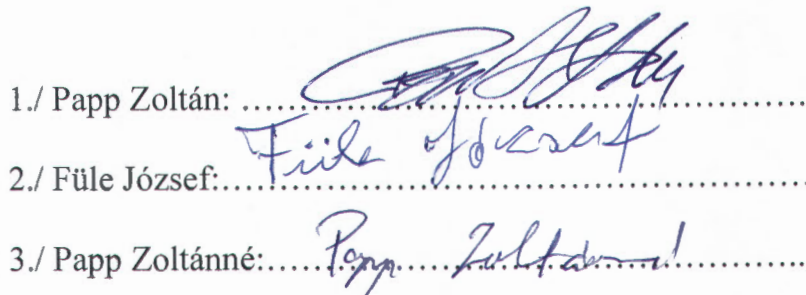 1./ Papp Zoltán: ........................................................
Füle József
2./ Füle József:........................................................
3./ Papp Zoltánné:....Papp Zoltánné....................